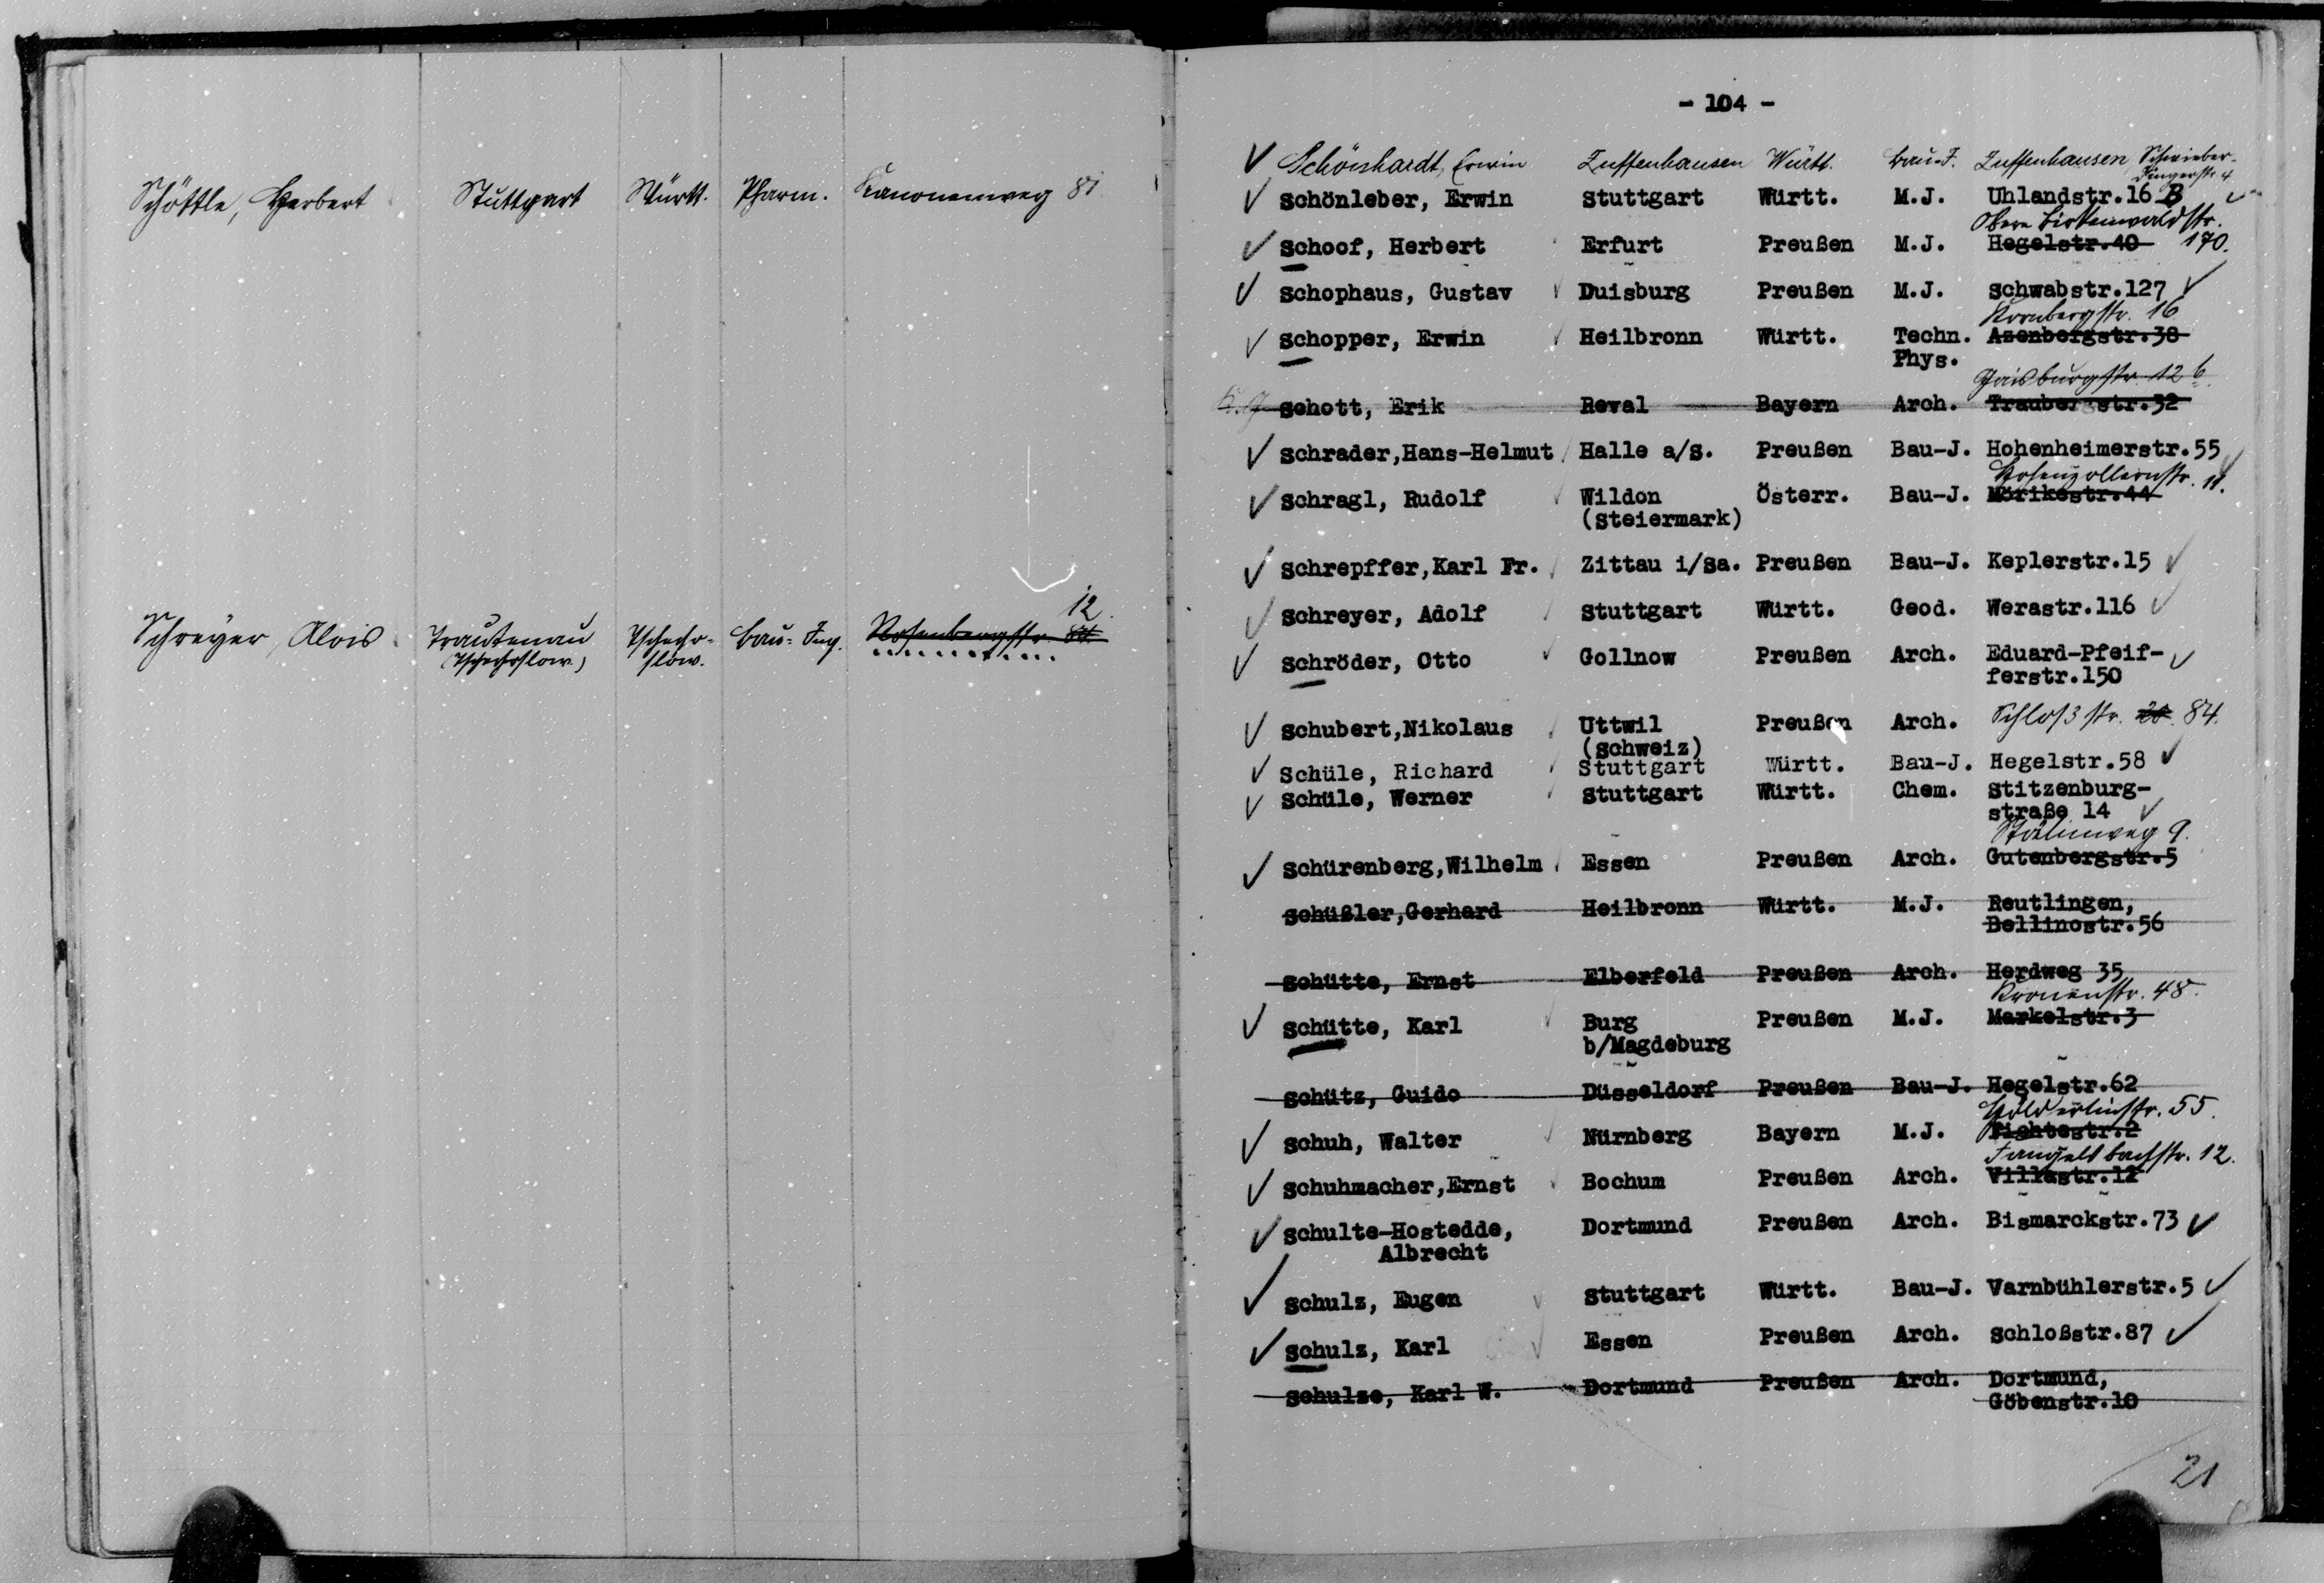 Schöttle, Herbert Stuttgart Württ. Pharm. Kanonenweg 81
12
Schreyer, Alois Trautenau Tschecho- Bau-Ing. Rosenbergstr.
(Tschechoslow.) slow.
- 104 -
Schönhardt, Erwin Zuffenhausen Württ. Bau-J. Zuffenhausen, Schwieber-
dingerstr. 4
Schönleber, Erwin Stuttgart Württ. M.J. Uhlandstr.16 B
Obere Birkenwaldstr.
Schoof, Herbert Erfurt Preußen M.J. Hegelstr.40 170.
Schophaus, Gustav Duisburg Preußen M.J. Schwabstr.127
Kornbergstr. 16
Schopper, Erwin Heilbronn Württ. Techn. Azenbergstr.38
Phys.
Gaisburgstr. 12 b.
Schott, Erik Reval Bayern Arch. Traubergstr.32
Schrader,Hans-Helmut Halle a/S. Preußen Bau-J. Hohenheimerstr.55
Hohenzollernstr. 11.
Schragl, Rudolf Wildon Österr. Bau-J. Mörikestr.44
(Steiermark)
Schrepffer,Karl Fr. Zittau i/Sa. Preußen Bau-J. Keplerstr.15
Schreyer, Adolf Stuttgart Württ. Geod. Werastr.116
Schröder, Otto Gollnow Preußen Arch. Eduard-Pfeif-
ferstr.150
Schubert,Nikolaus Uttwil Preußen Arch. Schloßstr. 28. 84.
(Schweiz)
Schüle, Richard Stuttgart Württ. Bau-J. Hegelstr.58
Schüle, Werner Stuttgart Württ. Chem. Stitzenburg-
straße 14
Stälinweg 9.
Schürenberg,Wilhelm Essen Preußen Arch. Gutenbergstr.5
Schüßler,Gerhard Heilbronn Württ. M.J. Reutlingen,
Bellinostr.56
Schütte, Ernst Elberfeld Preußen Arch. Herdweg 35
Kronenstr. 48.
Schütte, Karl Burg Preußen M.J. Markelstr.3
b/Magdeburg
Schütz, Guido Düsseldorf Preußen Bau-J. Hegelstr.62
Hölderlinstr. 55.
Schuh, Walter Nürnberg Bayern M.J. Fichtestr.2
Fangelsbachstr. 12.
Schuhmacher,Ernst Bochum Preußen Arch. Villastr.12
Schulte-Hostedde, Dortmund Preußen Arch. Bismarckstr.73
Albrecht
Schulz, Eugen Stuttgart Württ. Bau-J. Varnbühlerstr.5
Schulz, Karl Essen Preußen Arch. Schloßstr.87
Schulze, Karl W. Dortmund Preußen Arch. Dortmund,
Göbenstr.10
21